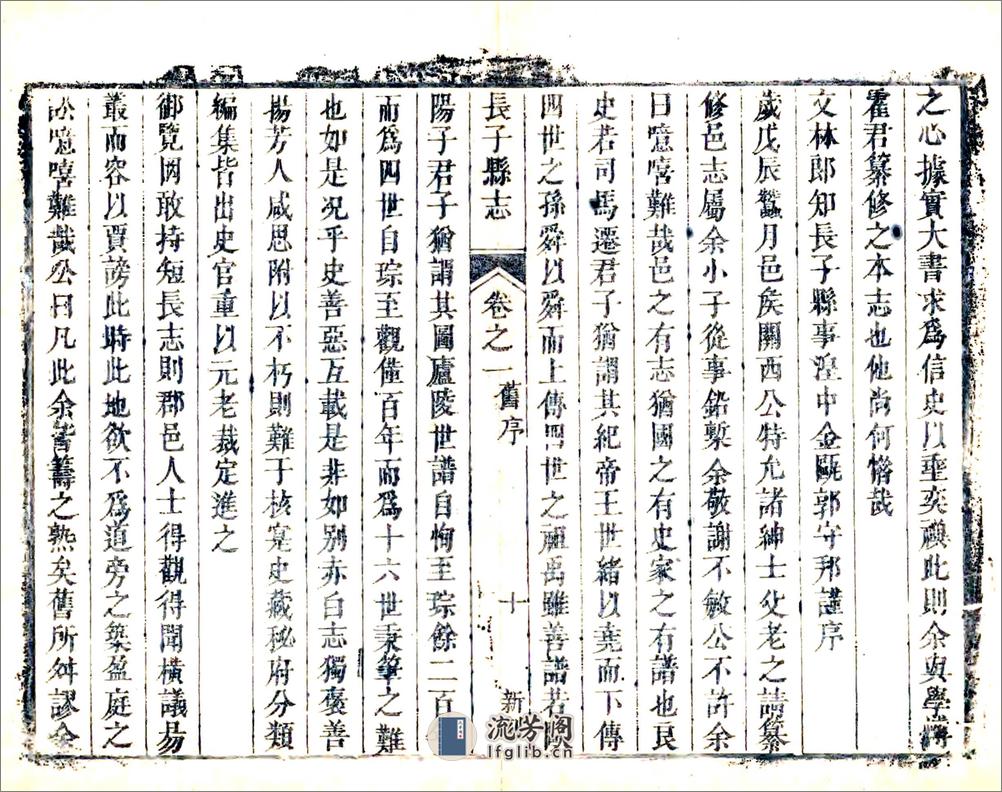 之心據實大書求爲信史以垂奕禩此則余與學博
霍君纂修之本志也他尚何惜哉
文林郎知長子縣事湟中金甌郭守邦謹序
歲戊辰蠶月邑矦關西公特允諸紳士父老之請纂
修邑志屬余小子從事鉛槧余敬謝不敏公不許余
曰噫嘻難哉邑之有志猶國之有史家之有譜也良
史若司馬遷君子猶謂其紀帝王世緒以堯而下傳
四世之孫舜以舜而上傳四世之祖禹雖善譜若
長子縣志 卷之一 舊序 十 新
陽子君子猶謂其圖廬陵世譜自恂至琮餘二百
而爲四世自琮至觀僅百年而爲十六世秉筆之難
也如是况乎史善惡互載是非如别亦白志獨褒善
揚芳人咸思附以不朽則難于核寔史藏秘府分類
編集皆出史官重以元老裁定進之
御覽罔敢持短長志則郡邑人士得觀得聞橫議易
叢而容以賈謗此時此地欲不爲道旁之築盈庭之
訟噫嘻難哉公曰凡此余皆籌之熟矣舊所舛謬余
流芳阁
lfglib.cn